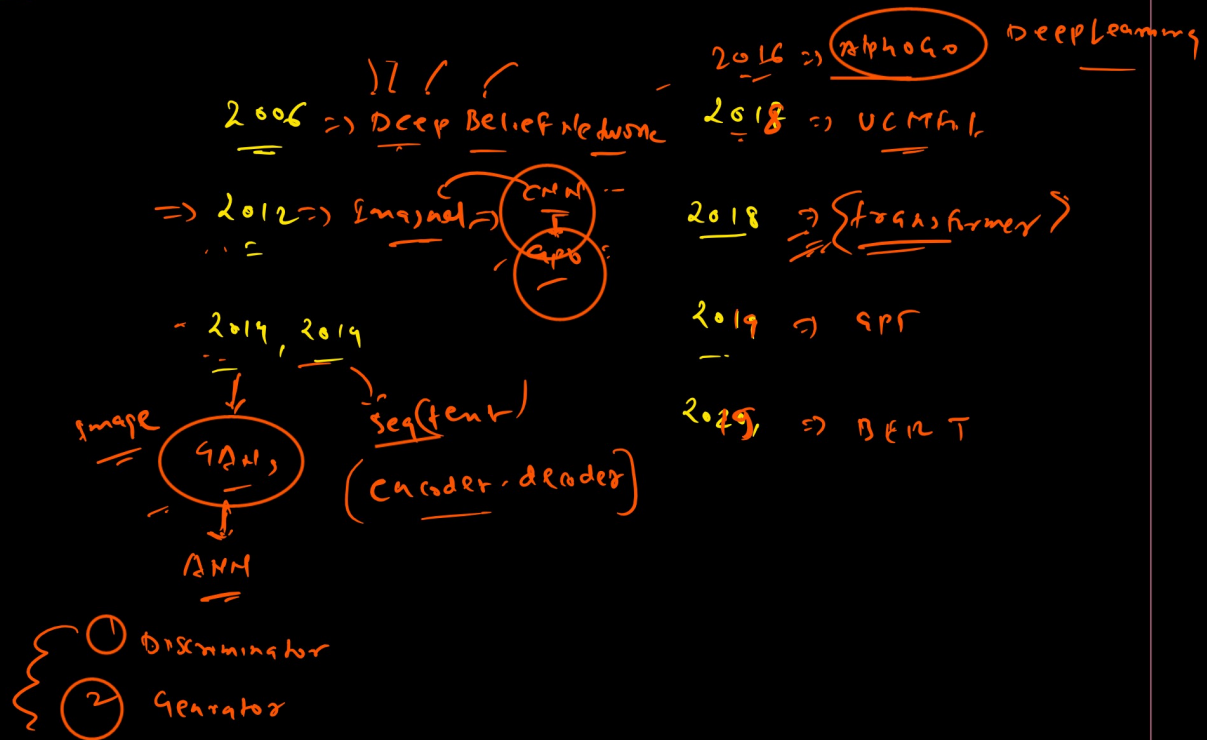 2006 => Deep Belief Network
=> 2012 => Imagnet => CNN
GPU
2014, 2014
Image
GANs
Seq(text)
(encoder-decoder)
ANN
1 Discriminator
2 Genrator
2016 => AlphoGo DeepLearning
2018 =>
2018 => {transformer}
2019 => GPT
=> BERT